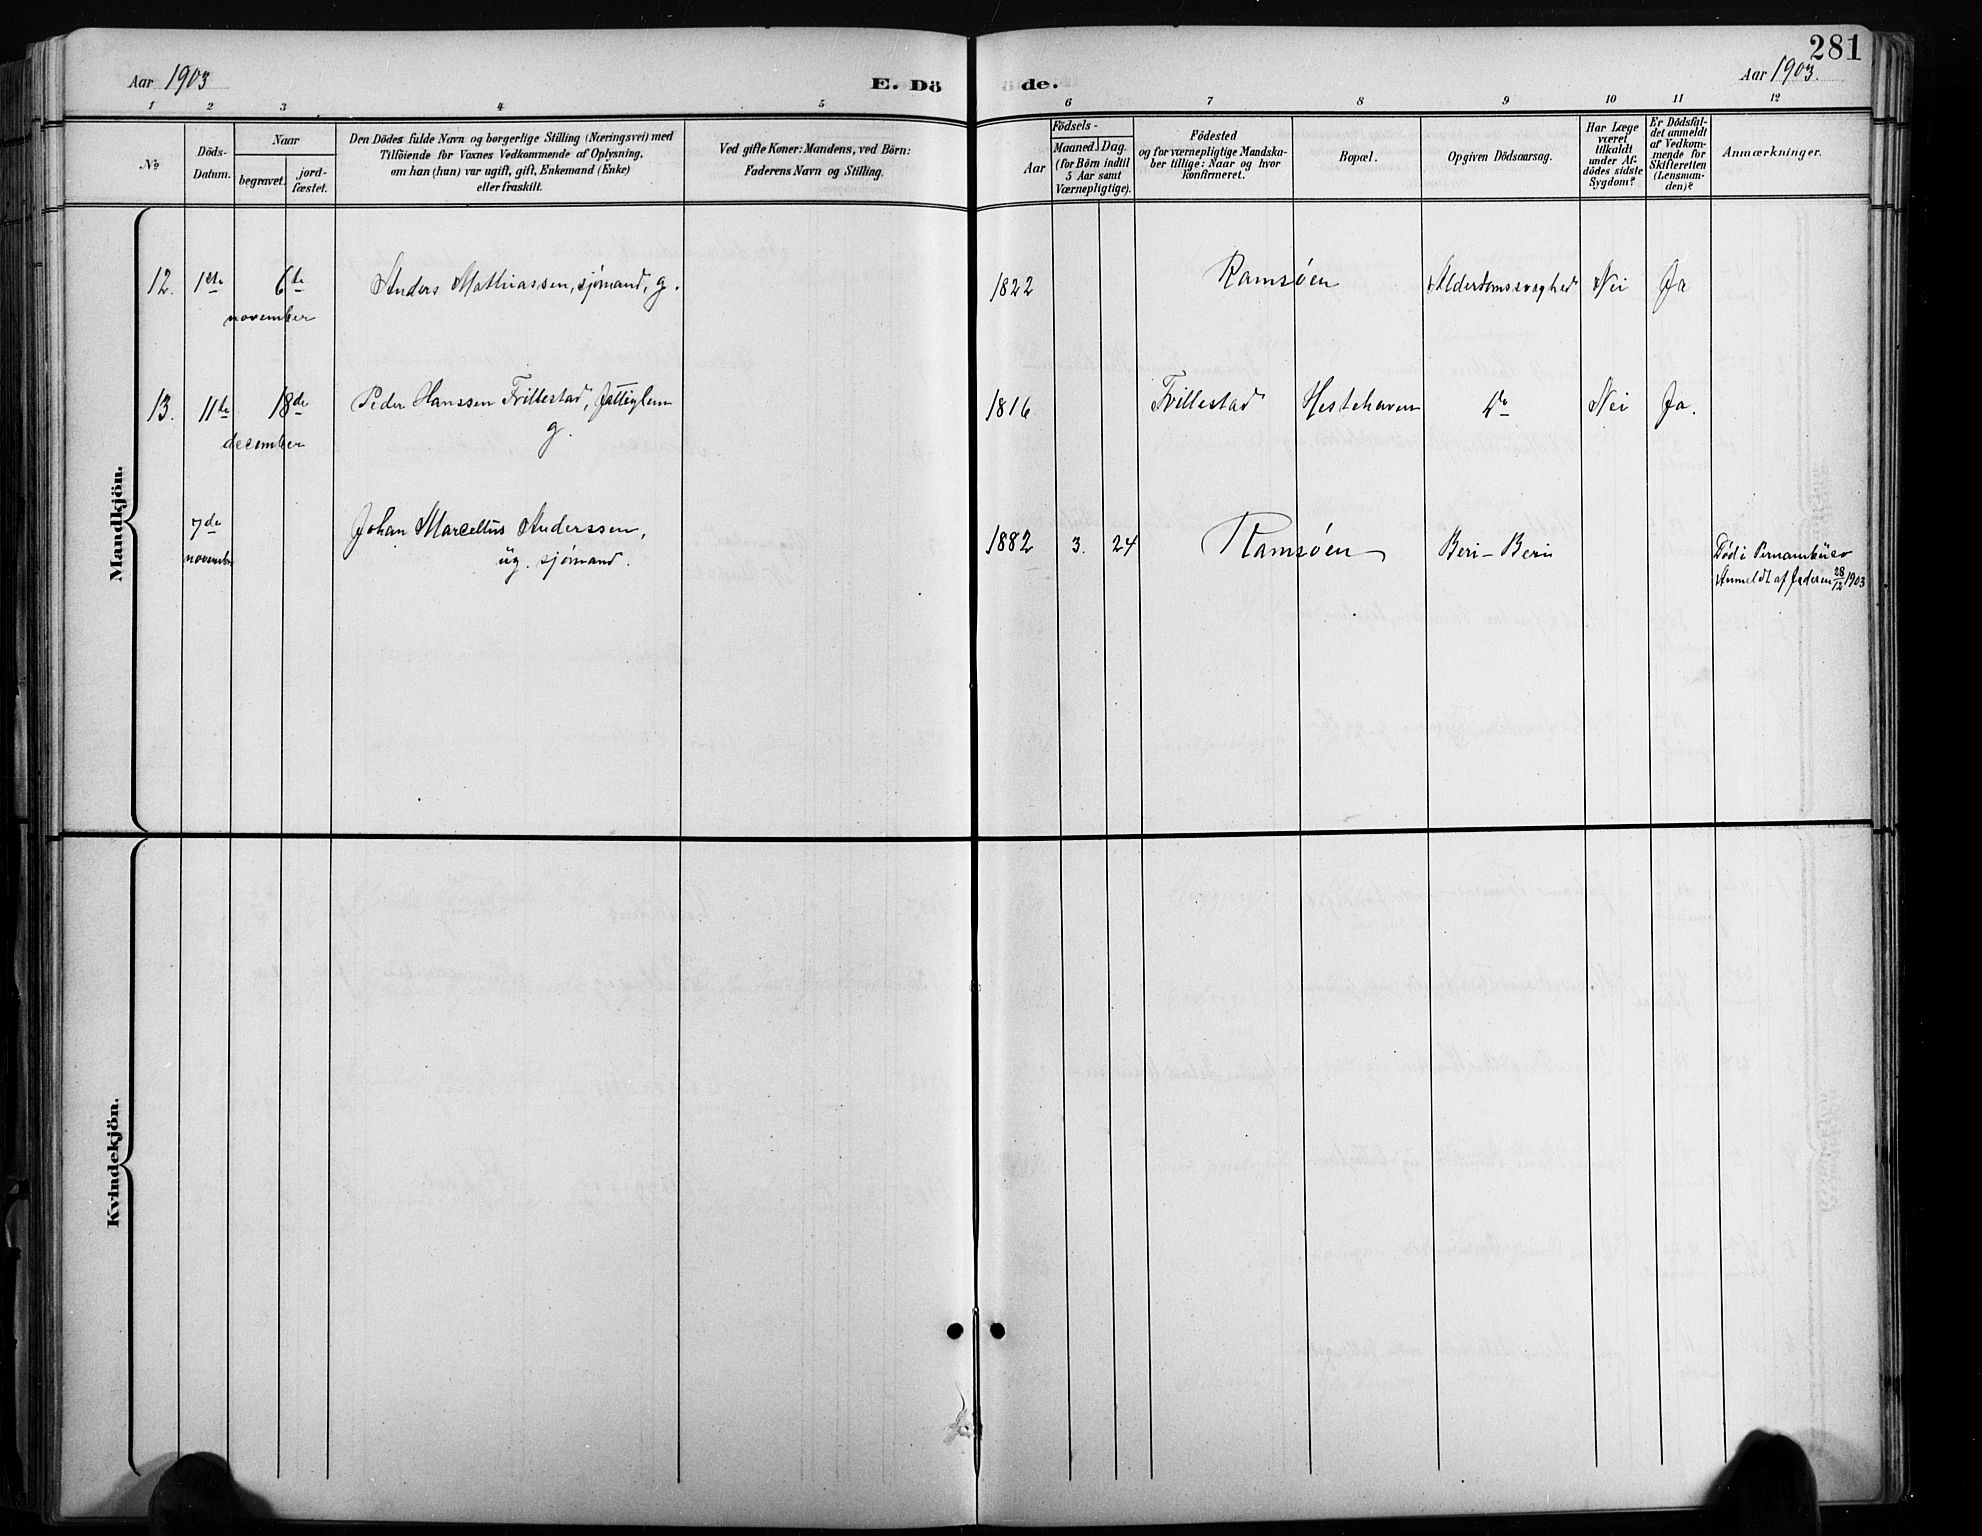 281
Aar 1903
E. Dö de.
Aar 1903.
1 2 3 4 5 6 7 8 9 10 11 12
No
Döds-
Datum.
Naar
begravet.
jord-
fæstet.
Den Dödes fulde Navn og borgerlige Stilling (Næringsvei) med
Tilföiende for Voxnes Vedkommende af Oplysning,
om han (hun) var ugift, gift, Enkemand (Enke)
eller fraskilt.
Ved gifte Koner: Mandens, ved Börn:
Faderens Navn og Stilling.
Födsels-
Aar
Maaned. Dag.
(for Börn indtil
5 Aar samt
Værnepligtige).
Födested
og for værnepligtige Mandska-
ber tillige: Naar og hvor
konfirmeret.
Bopæl.
Opgiven Dödsaarsag.
Har Læge
været
tilkaldt
under Af-
dödes sidste
Sygdom?
Er Dödsfal-
det anmeldt
af Vedkom-
mende for
Skifteretten
(Lensman-
den)?
Anmærkninger.
Mandkjön.
12. 1ste 6te Anders Mathiassen, sjømand, g. 1822 Ramsøen Alderdomssvaghed Nei Ja
november
13. 11te 18de Peder Hanssen Trillestad, fattiglem 1816 Trillestad Hestehaven Do Nei Ja.
december g.
7de Johan Marcelius Anderssen, 1882 3. 24 Ramsøen Beri-Beri
november ug. sjømand.
Död i Pernambuco
Anmeldt af faderen 28/12 1903
Kvindekjön.